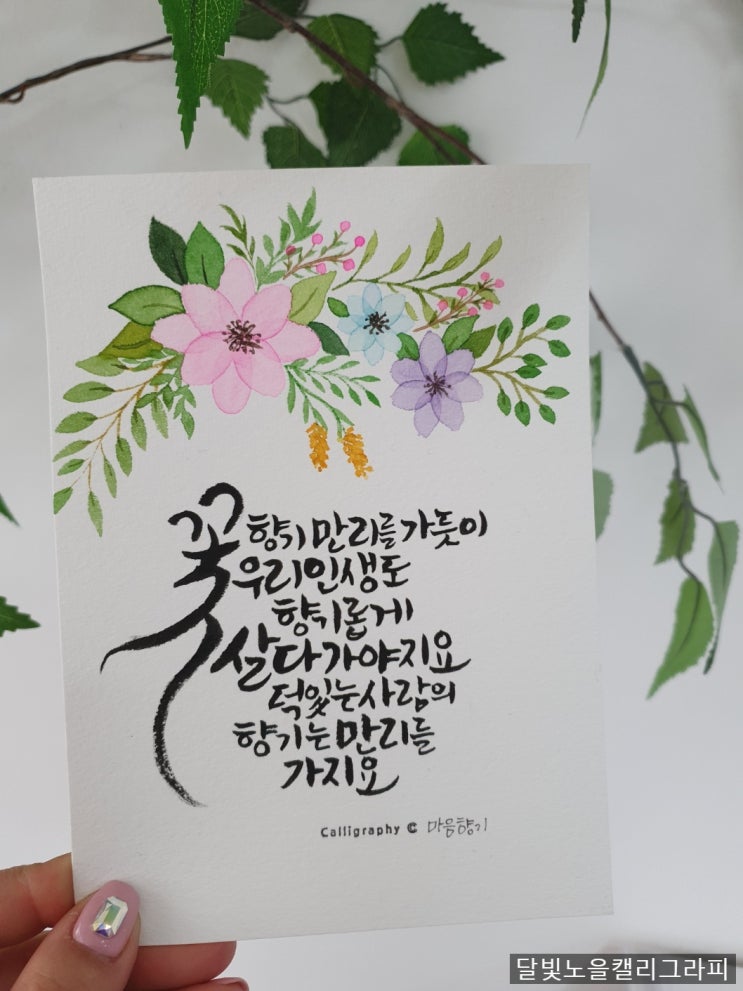 꽃향기 만리를 가듯이
우리 인생도
향기롭게
살다가야지요
덕있는 사람의
향기는 만리를
가지요
Calligraphy © 마음향기
달빛노을캘리그라피